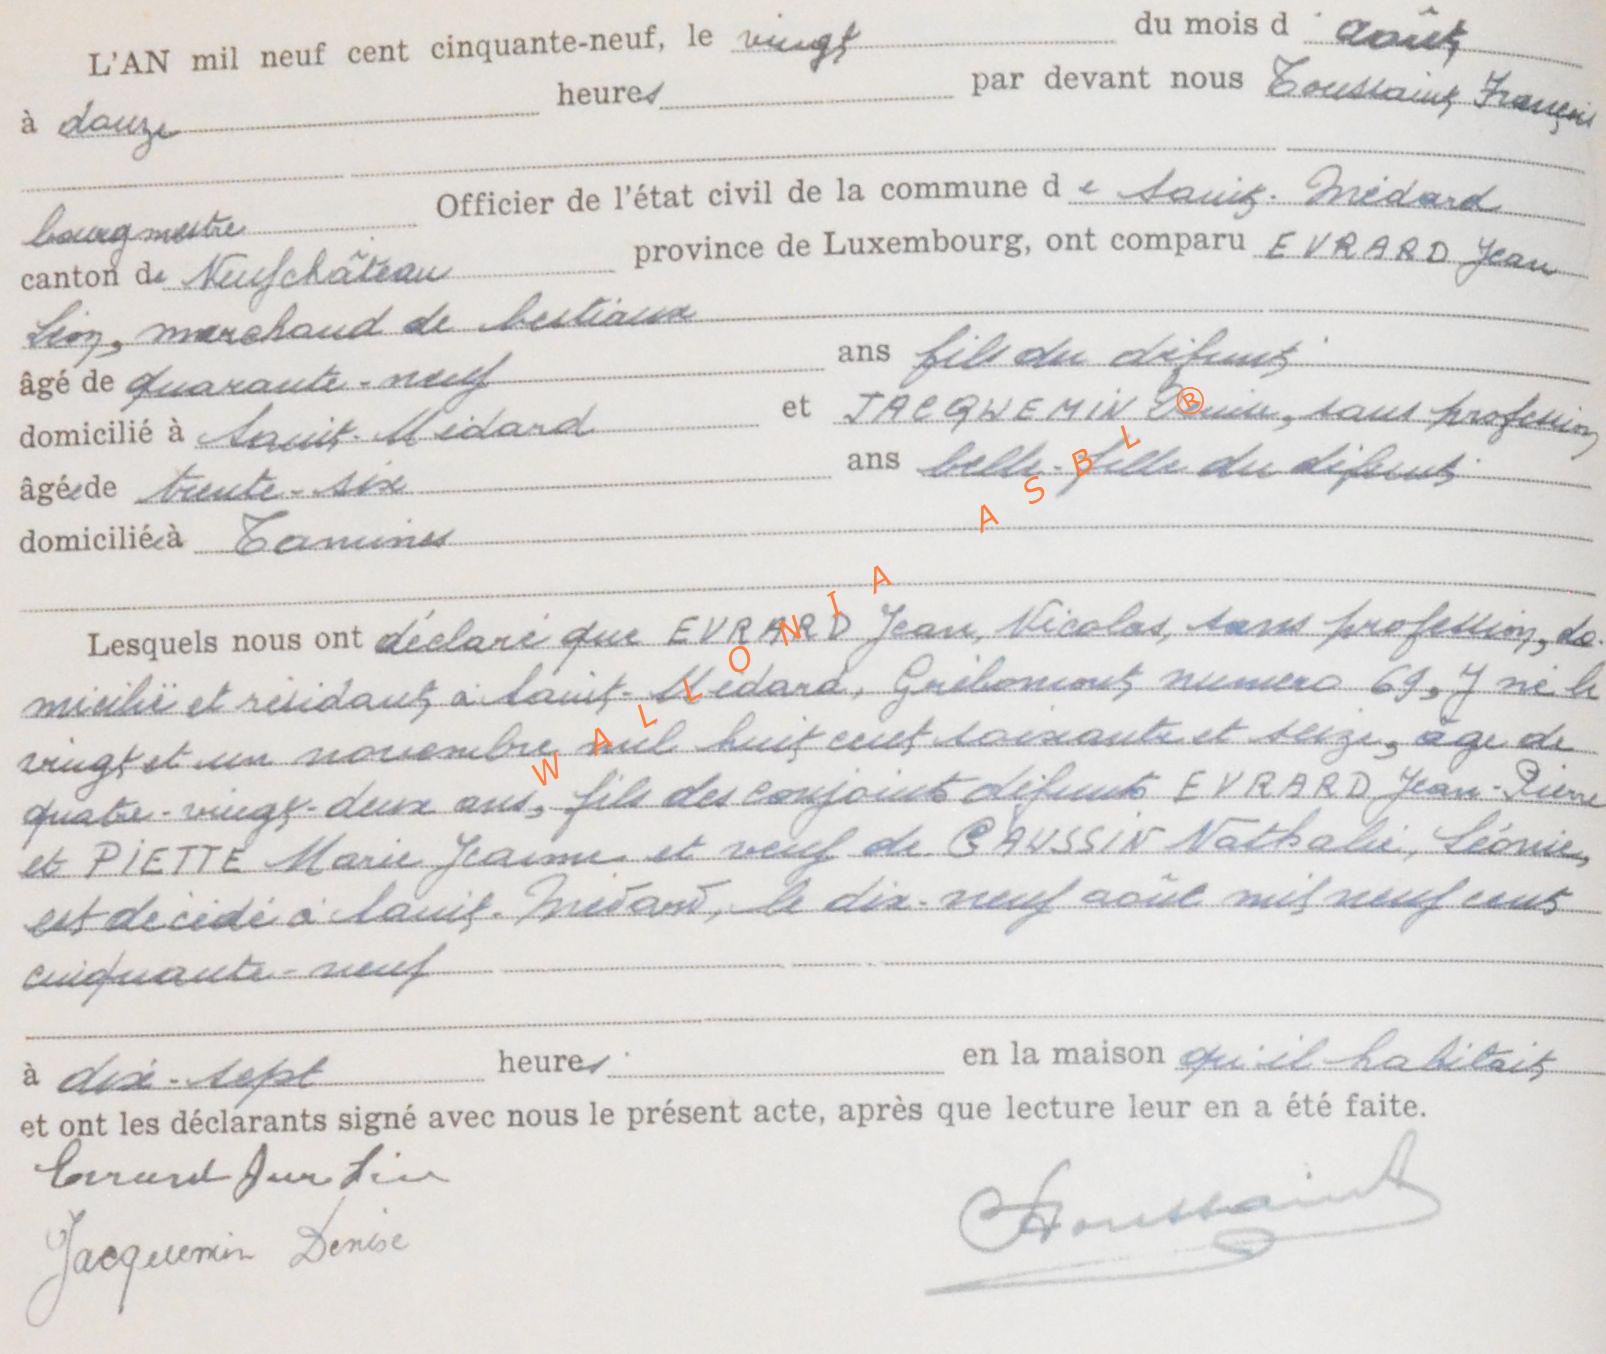 L'AN mil neuf cent cinquante-neuf, le vingt du mois d' août
à douze heures par devant nous Toussaint, François
bourgmestre Officier de l'état civil de la commune de Saint-Médard
canton de Neufchâteau province de Luxembourg, ont comparu EVRARD Jean
Léon, marchand de bestiaux
âgé de quarante-neuf ans fils du défunt
domicilié à Saint-Médard et JACQUEMIN Denise, sans profession
âgée de trente-six ans belle-fille du défunt
domiciliée à Tamines
Lesquels nous ont déclaré que EVRARD Jean, Nicolas, sans profession, do-
micilié et résidant à Saint-Médard, Gribomont numero 69, y né le
vingt et un novembre mil huit cent soixante et seize, âgé de
quatre-vingt-deux ans, fils des conjoints défunts EVRARD Jean-Pierre
et PIETTE Marie Jeanne et veuf de CAUSSIN Nathalie, Léonie,
est décédé à Saint-Médard, le dix-neuf août mil neuf cent
cinquante-neuf
à dix-sept heures en la maison qu'il habitait
et ont les déclarants signé avec nous le présent acte, après que lecture leur en a été faite.
Evrard Jean Léon
Jacquemin Denise
Toussaint
WALLONIA ASBL ®